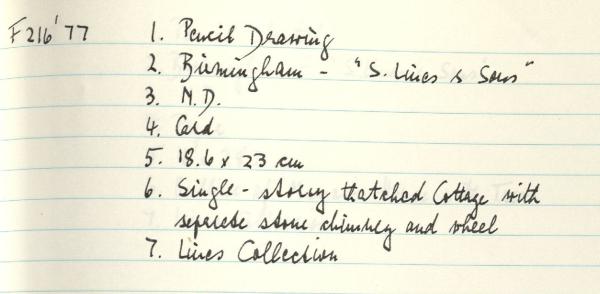 F216'77 1. Pencil Drawing
2. Birmingham - "S. Lines & Sons"
3. N.D.
4. Card
5. 18.6 x 23 cm
6. Single-storey thatched Cottage with
separate stone chimney and wheel
7. Lines Collection